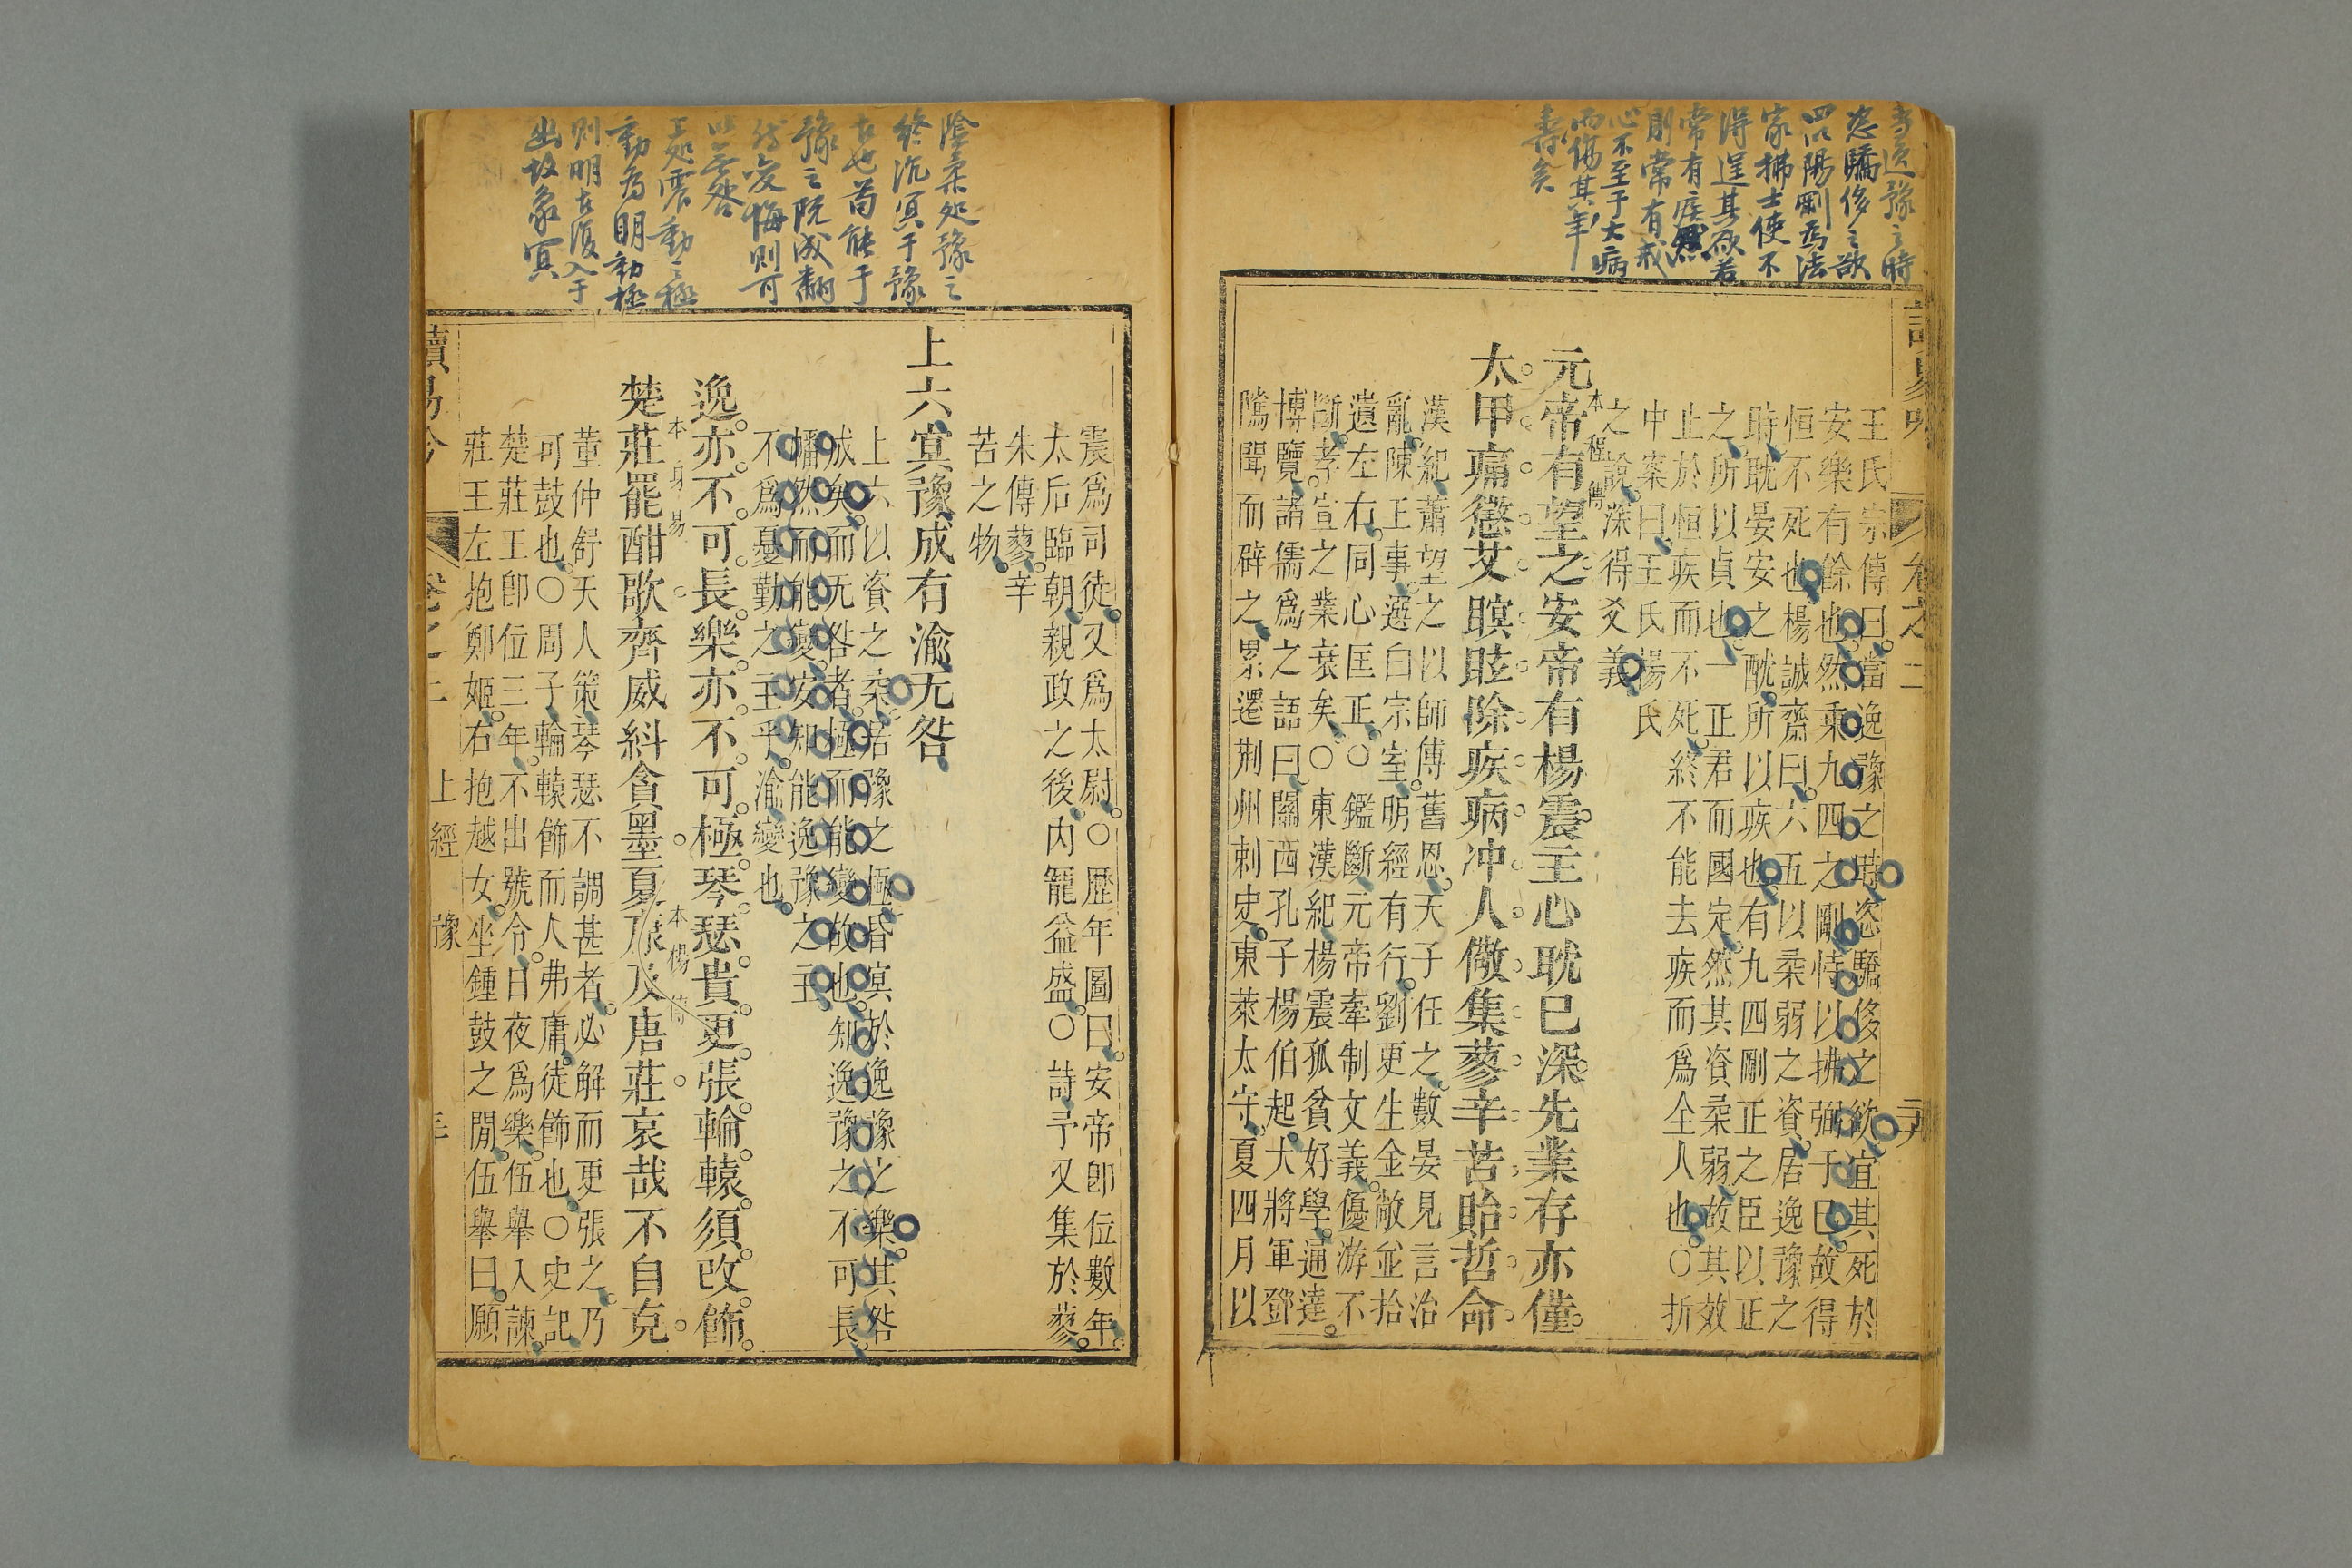 當逸豫之時
恣驕侈之欲
四陽剛為法
家拂士使不
得逞其欲若
常有疾然
則常有戒
心不至于大病
而傷其年
壽矣
卷之二
王氏宗傳曰當逸豫之時恣驕侈之欲宜其死於
安樂有餘也然乘九四之剛恃以拂弼于己故得
恒不死也楊誠齋曰六五以柔弱之資居逸豫之
時耽晏安之酖所以疾也有九四剛正之臣以正
之所以貞也一正君而國定然其資柔弱故其效
止於恒疾而不死終不能去疾而為全人也○折
中案曰王氏楊氏
之說深得爻義
元帝有望之安帝有楊震主心耽已深先業存亦僅
本程傳
太甲痛懲艾瞑眩除疾病沖人儆集蓼辛苦貽哲命
漢紀蕭望之以師傅舊恩天子任之數晏見言治
亂陳王事選白宗室明經有行劉更生金敞並拾
遺左右同心匡正○鑑斷元帝牽制文義優游不
斷孝宣之業衰矣○東漢紀楊震孤貧好學通達
博覽諸儒為之語曰關西孔子楊伯起大將軍鄧
隲聞而辟之累遷荆州刺史東萊太守夏四月以
陰柔処豫之
終沉冥于豫
者也苟能于
豫之既成翻
然变悔則可
以無咎
上処震動之極
動為明動極
則明者復入于
幽故象冥
震為司徒又為太尉○歷年圖曰安帝卽位數年
太后臨朝親政之後內寵益盛○詩予又集於蓼
朱傳蓼辛
苦之物
上六冥豫成有渝无咎
上六以資之柔居豫之極昏冥於逸豫之樂其咎
成矣而无咎者極而能變故也知逸豫之不可長
幡然而能變安知能逸豫之主
不為憂勤之主乎渝變也
逸亦不可長樂亦不可極琴瑟貴更張輪轅須改飾
本身易
本楊傳
楚莊罷酣歌齊威糾貪墨夏康及唐莊哀哉不自克
董仲舒天人策琴瑟不調甚者必解而更張之乃
可鼓也○周子輪轅飾而人弗庸徒飾也○史記
楚莊王卽位三年不出號令日夜為樂伍舉入諫
莊王左抱鄭姬右抱越女坐鍾鼓之閒伍舉曰願
讀易吟
卷之二 上經 豫